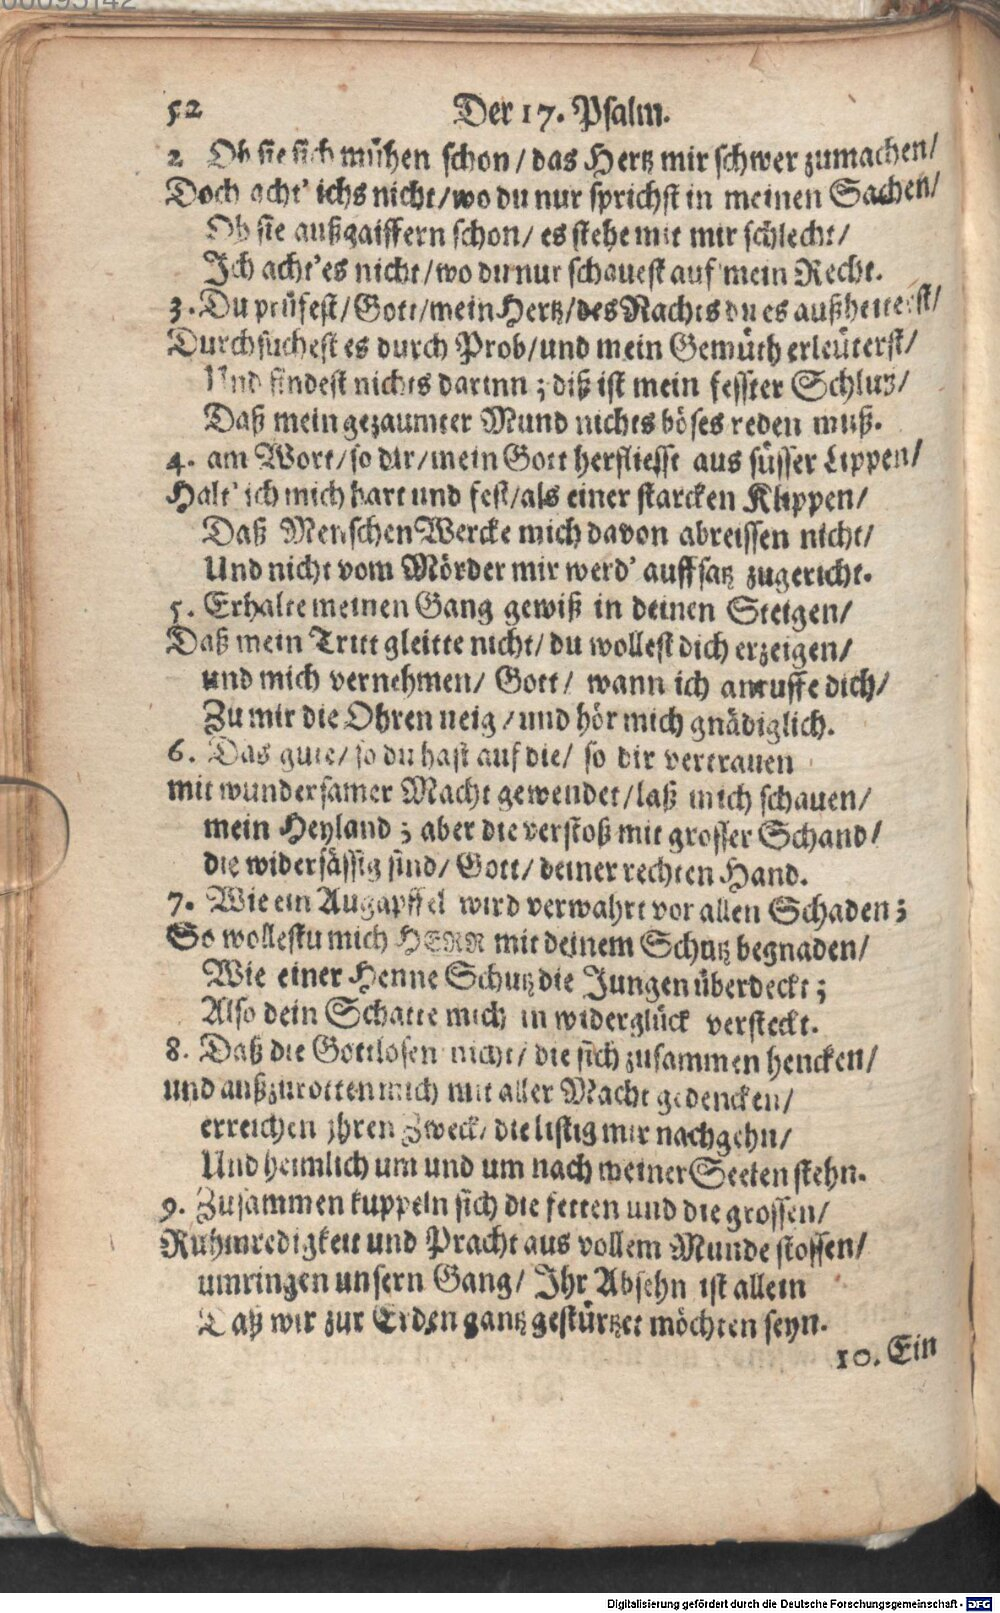 52 Der 17. Psalm.
2 Ob sie sich mühen schon / das Hertz mir schwer zumachen /
Doch acht' ichs nicht / wo du nur sprichst in meinen Sachen /
Ob sie außgaiffern schon / es stehe mit mir schlecht /
Ich acht' es nicht / wo du nur schauest auf mein Recht.
3. Du prüfest / Gott / mein Hertz / des Nachts du es außheiterst /
Durchsuchest es durch Prob / und mein Gemüth erleüterst /
Und findest nichts darinn ; diß ist mein fesster Schluß /
Daß mein gezaumter Mund nichts böses reden muß.
4. am Wort / so dir / mein Gott herfliesst aus süsser Lippen /
Halt' ich mich hart und fest / als einer starcken Klippen /
Daß Menschen Wercke mich davon abreissen nicht /
Und nicht vom Mörder mir werd' auffsatz zugericht.
5. Erhalte meinen Gang gewiß in deinen Steigen /
Daß mein Tritt gleitte nicht / du wollest dich erzeigen /
und mich vernehmen / Gott / wann ich anruffe dich /
Zu mir die Ohren neig / und hör mich gnädiglich.
6. Das gute / so du hast auf die / so dir vertrauen
mit wundersamer Macht gewendet / laß mich schauen /
mein Heyland ; aber die verstoß mit grosser Schand /
die widersässig sind / Gott / deiner rechten Hand.
7. Wie ein Augapffel wird verwahrt vor allen Schaden ;
So wollestu mich HERR mit deinem Schutz begnaden /
Wie einer Henne Schutz die Jungen überdeckt ;
Also dein Schatte mich in widerglück versteckt.
8. Daß die Gottlosen nicht / die sich zusammen hencken /
und außzurotten mich mit aller Macht gedencken /
erreichen jhren Zweck / die listig mir nachgehn /
Und heimlich um und um nach meiner Seelen stehn.
9. Zusammen kuppeln sich die fetten und die grossen /
Ruhmredigkeit und Pracht aus vollem Munde stossen /
umringen unsern Gang / Ihr Absehn ist allein
Daß wir zur Erden gantz gestürtzet möchten seyn.
10. Ein
Digitalisierung gefördert durch die Deutsche Forschungsgemeinschaft - DFG